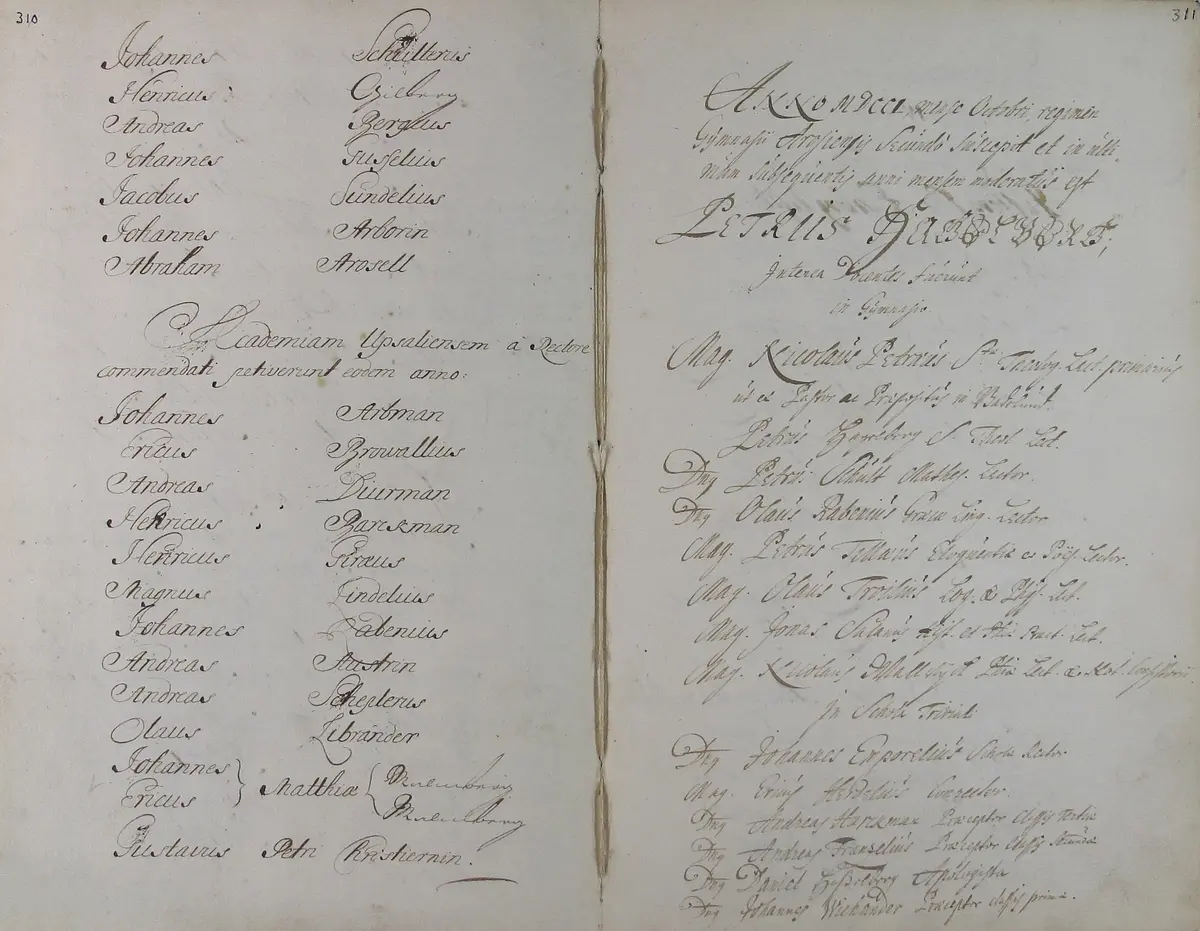 310
Johannes Schütterus
Henricus Gilberg
Andreas Berglius
Johannes Susselius
Jacobus Sundelius
Johannes Arborin
Abraham Arosell
Academiam Upsaliensem à Rectore
commendati petiverunt eodem anno:
Johannes Arbman
Ericus Browallius
Andreas Diurman
Henricus Barckman
Henricus Giræus
Magnus Lindelius
Johannes Rabenius
Andreas Austrin
Andreas Scheplerus
Olaus Librander
Johannes
Ericus Matthiæ
Gustavus Petri Christiernin.
311
ANNO MDCCI, mense Octobri, regimen
Gÿmnasii Arosiensis Secundò suscepit et in ulti-
mam subsequentis anni mensem moderatus est
PETRUS
Interea Docentes fuerunt
in Gymnasio
Mag. Nicolaus Petræus S. Theolog. Lect. primarius
ut et Pastor ac Præpositus in
Petrus S. Theol. Lect.
Dns Petrus Schult Mathes. Lector.
Dns Olaus Rabenius Græcæ Ling. Lector
Mag. Petrus Tillæus Eloquentiæ et Poës. Lector.
Mag. Olaus Troilius Log. & Phÿs. Lect.
Mag. Jonas Salanus Hist. et Lect.
Mag. Nicolaus Lect. & Not. Consistorii
In Schola Triviali
Dns Johannes Emporelius Scholæ Rector
Mag. Ericus Conrector.
Dns Andreas Barckman Præceptor classis tertiæ
Dns Andreas Franselius Præceptor classis secundæ
Dns Daniel Apologista
Dns Johannes Wickander Præceptor classis primæ.